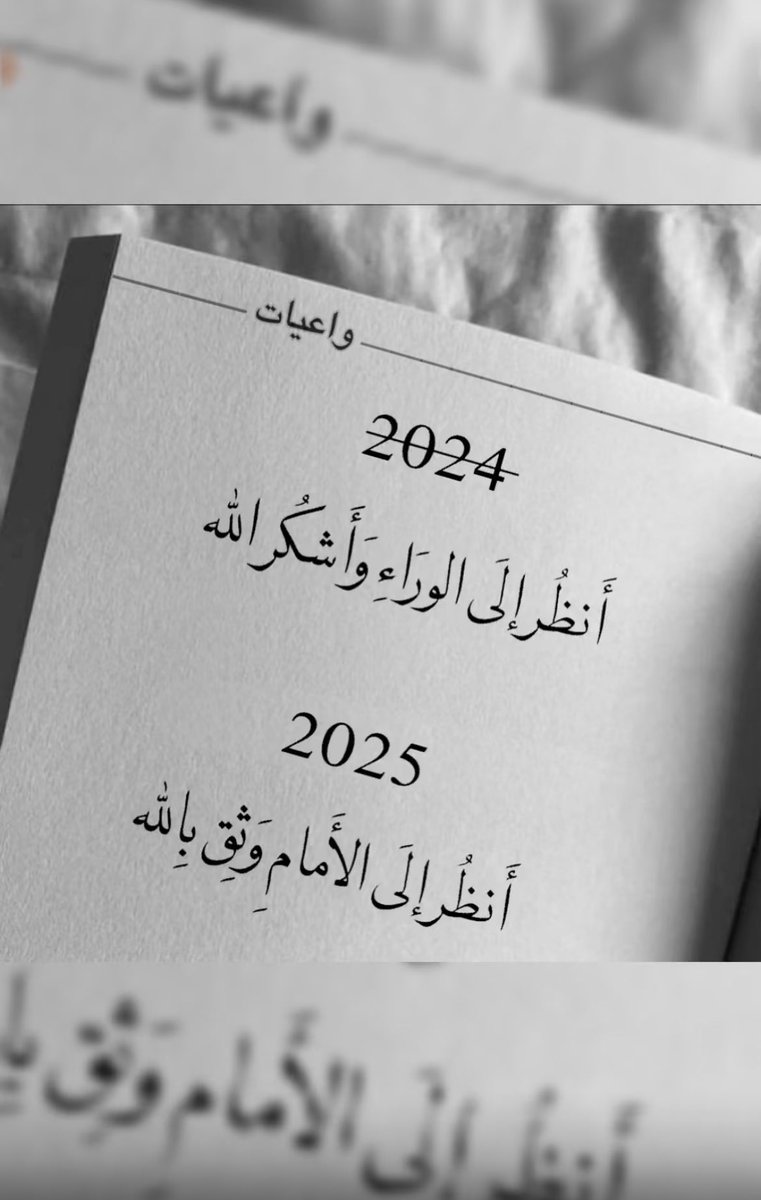 واعيات
واعيات
2024
أَنظُر إلَى الورَاءِ وَأَشكُر الله
2025
أَنظُر إلَى الأَمامِ وَثِق بِالله
أَنظُر إلَى الأَمامِ وَثِق بِا